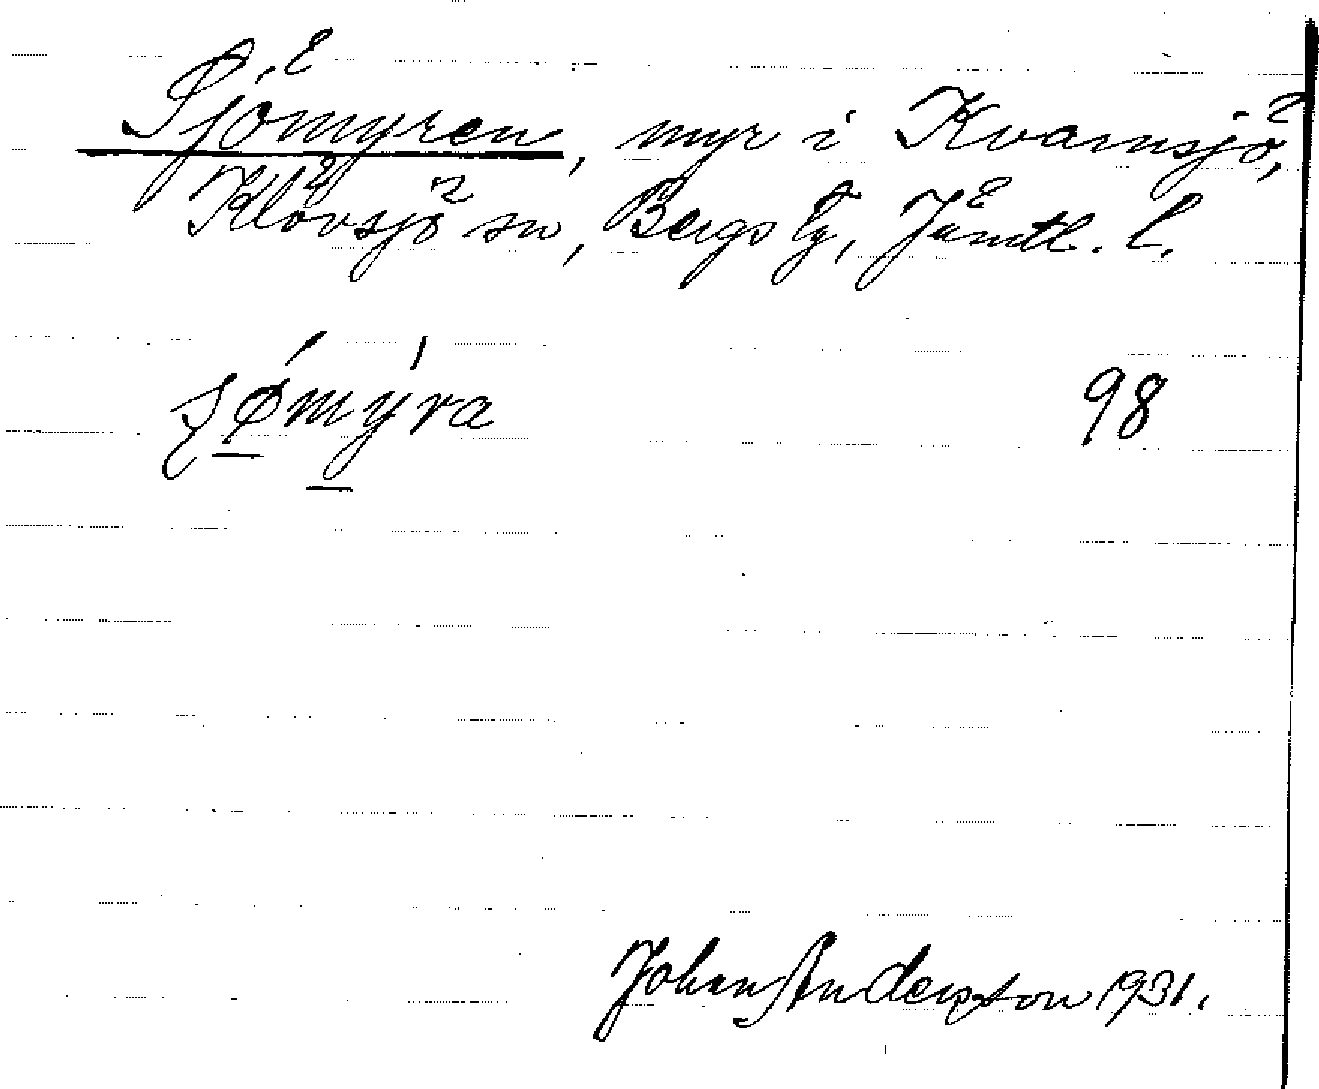 Sjömyren, myr i Kvarnsjö,
Klövsjö sn, Bergs tg, Jämtl. l.
sǿmýra 98
Johan Anderzton 1931.